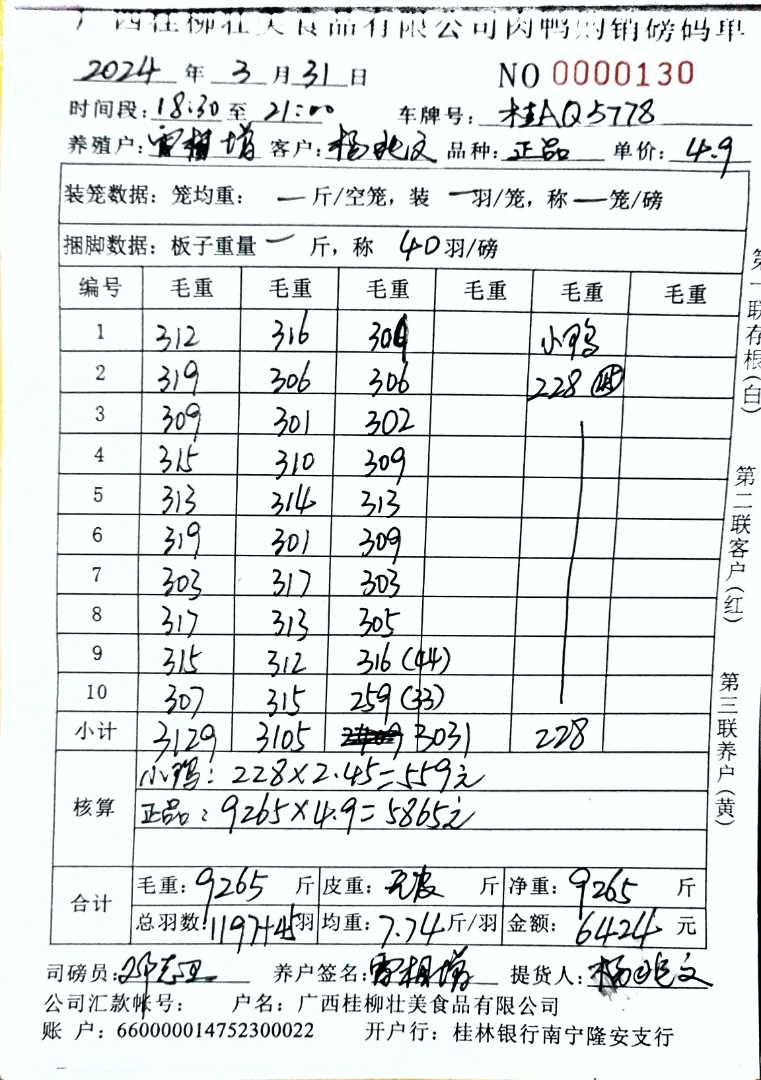 广西桂柳壮美食品有限公司肉鸭购销磅码单
2024 年 3 月 31 日 NO 0000130
时间段: 18:30 至 21:00 车牌号: 桂AQ5778
养殖户: 雷相增 客户: 杨兆文 品种: 正品 单价: 4.9
装笼数据: 笼均重: — 斤/空笼, 装 — 羽/笼, 称 — 笼/磅
捆脚数据: 板子重量 — 斤, 称 40 羽/磅
编号 毛重 毛重 毛重 毛重 毛重 毛重
1 312 316 301 小鸭
2 319 306 306 228 (45)
3 309 301 302
4 315 310 309
5 313 314 313
6 319 301 309
7 303 317 303
8 317 313 305
9 315 312 316 (44)
10 307 315 259 (33)
小计 3129 3105 3031 228
核算
小鸭: 228×2.45=559元
正品: 9265×4.9=5865元
合计
毛重: 9265 斤 皮重: 无皮 斤 净重: 9265 斤
总羽数: 1197+45 羽 均重: 7.74 斤/羽 金额: 6424 元
司磅员: 养户签名: 雷相增 提货人: 杨兆文
公司汇款帐号: 户名: 广西桂柳壮美食品有限公司
账 户: 660000014752300022 开户行: 桂林银行南宁隆安支行
第一联存根(白)
第二联客户(红)
第三联养户(黄)